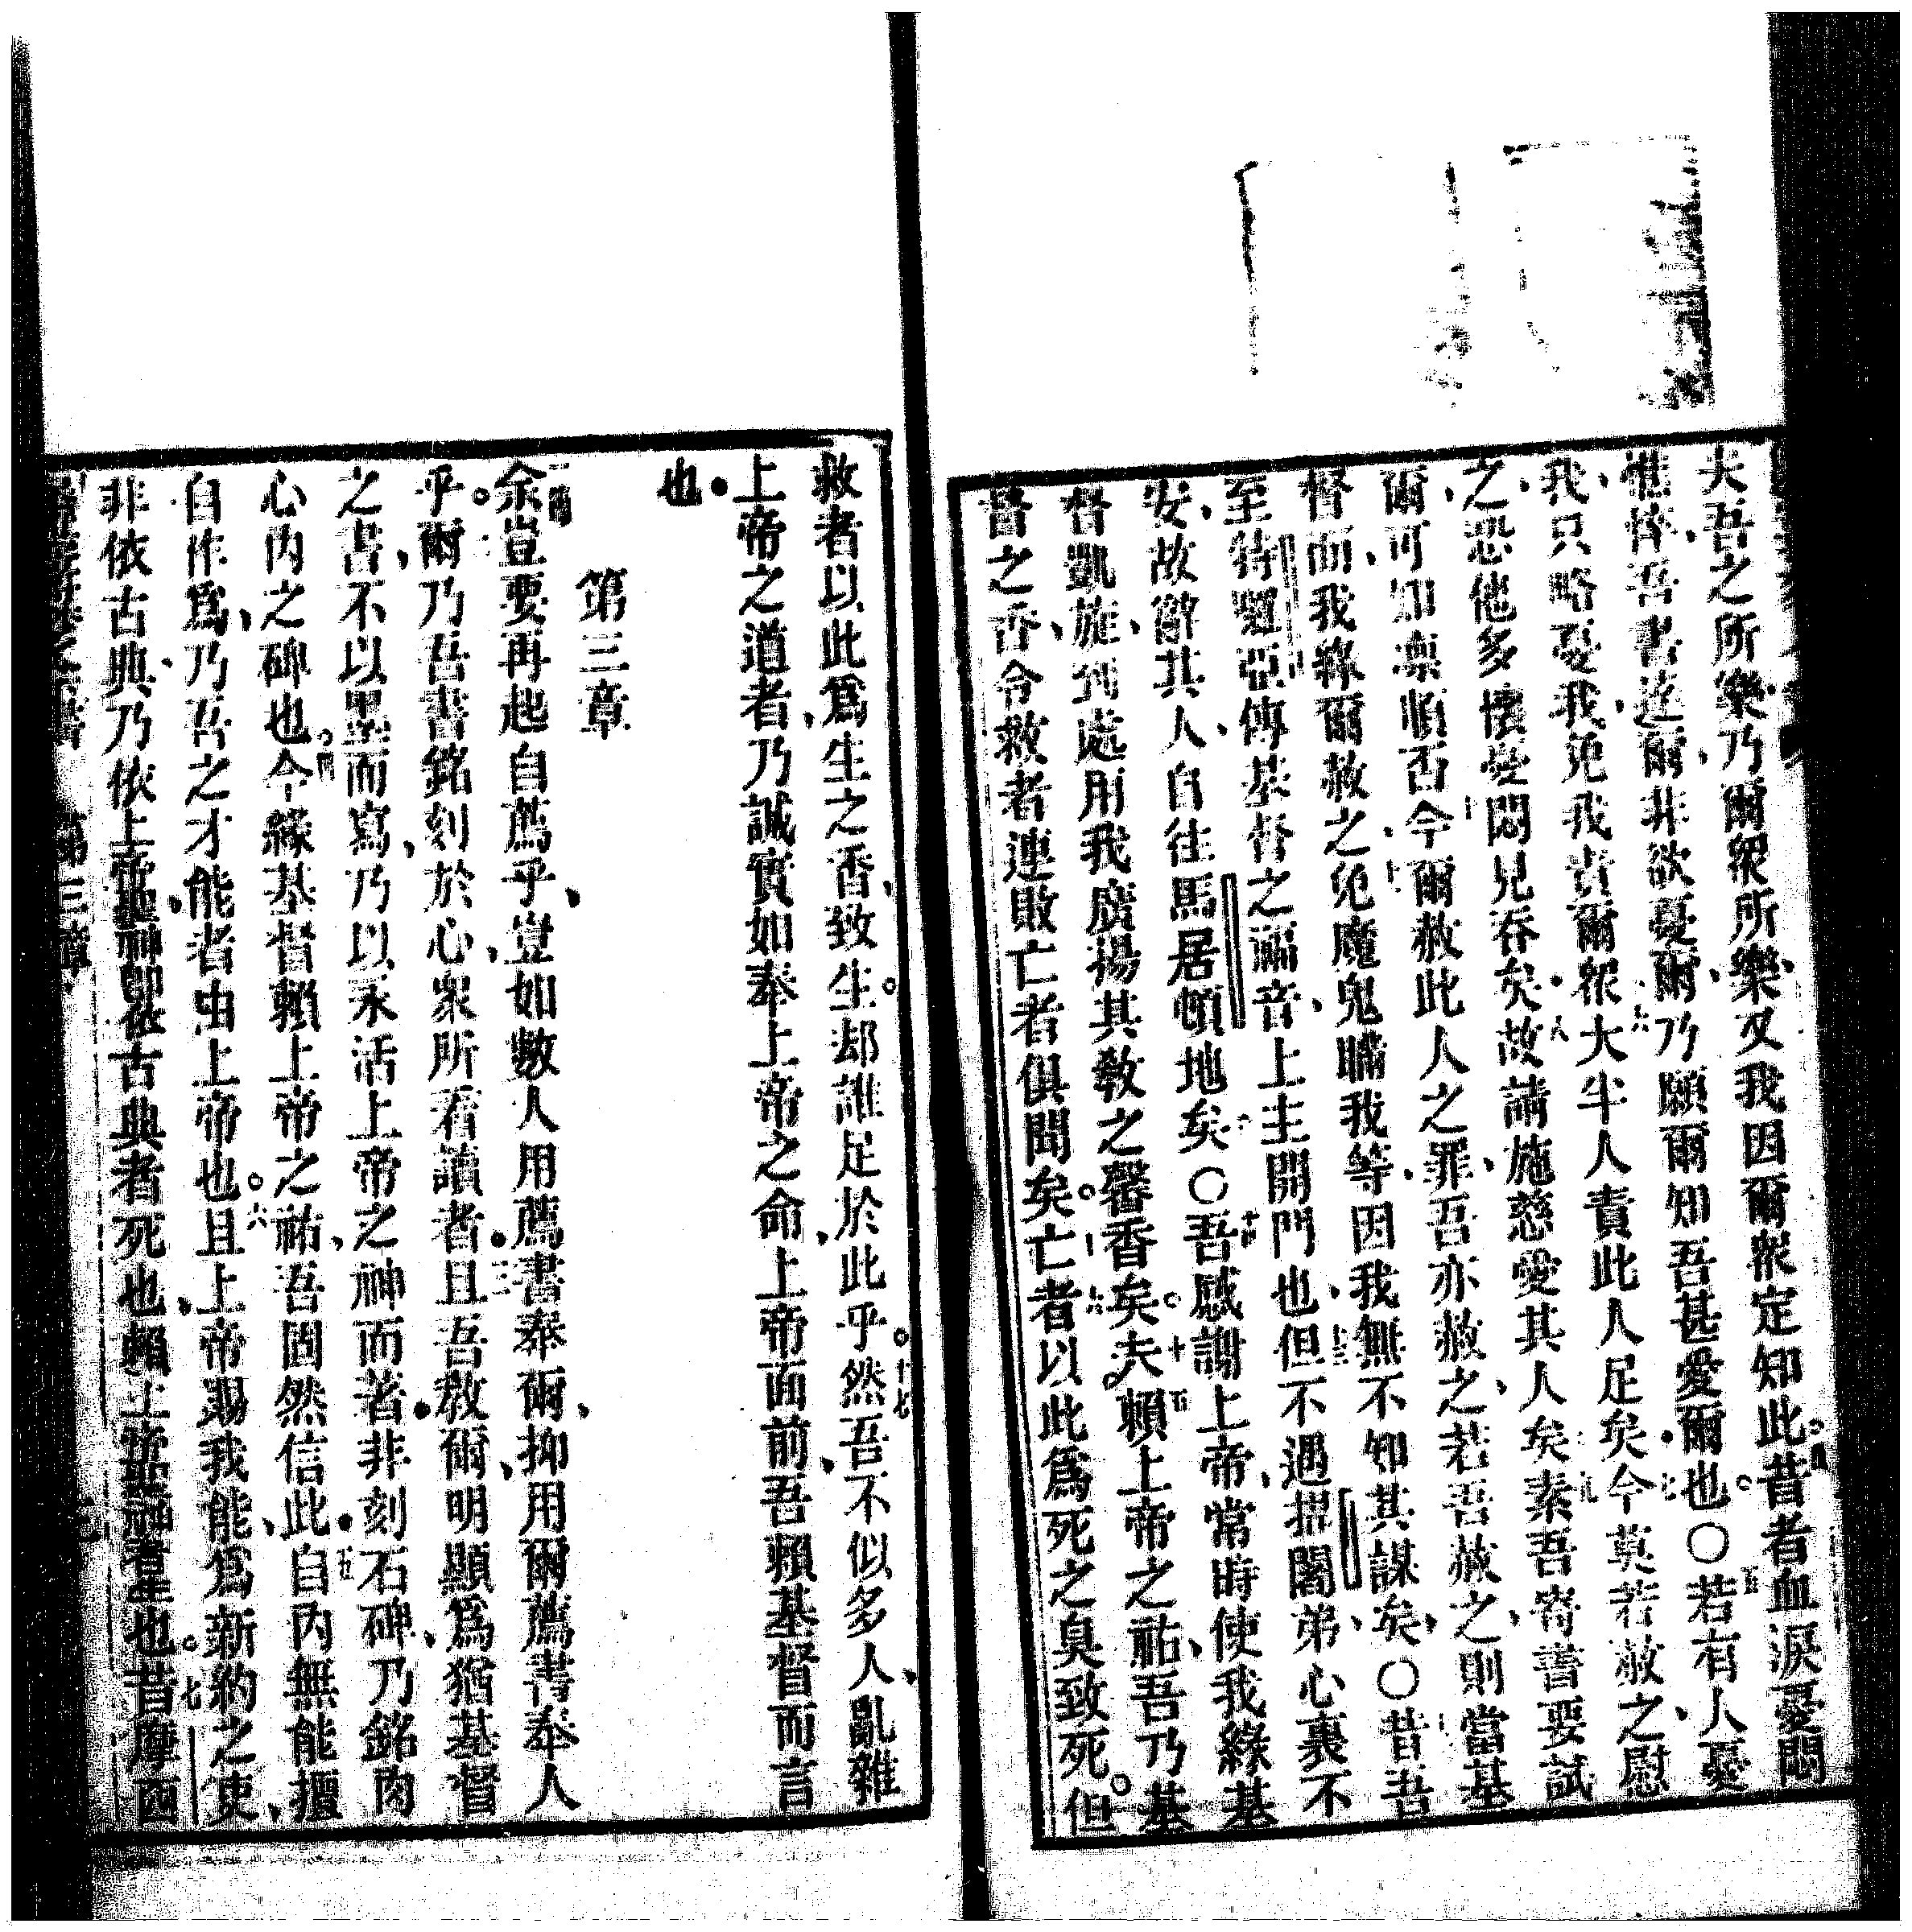 夫吾之所樂乃爾衆所樂又我因爾衆定知此昔者血淚憂悶
憔悴吾書迄爾非欲憂爾乃願爾知吾甚愛爾也〇若有人憂
我只略憂我免我責爾衆大半人責此人足矣今莫若赦之慰
之恐他多懷憂悶見吞矣故請施慈愛其人矣素吾寄書要試
爾可知凜順否今爾赦此人之罪吾亦赦之若吾赦之則當基
督面我緣爾赦之免魔鬼瞞我等因我無不知其謀矣〇昔吾
至特囉亞傳基督之福音上主開門也但不遇提闍弟心裏不
安故辭其人自往馬居頓地矣〇吾感謝上帝常時使我緣基
督凱旋到處用我廣揚其教之馨香矣夫賴上帝之祐吾乃基
督之香令救者連敗亡者俱聞矣亡者以此爲死之臭致死但
救者以此爲生之香致生却誰足於此乎然吾不似多人亂雜
上帝之道者乃誠實如奉上帝之命上帝面前吾賴基督而言
也
第三章
余豈要再起自薦乎豈如數人用薦書奉爾抑用爾薦書奉人
乎爾乃吾書銘刻於心衆所看讀者且吾教爾明顯爲猶基督
之書不以墨而寫乃以永活上帝之神而著非刻石碑乃銘肉
心內之碑也今緣基督賴上帝之祐吾固然信此自內無能擅
自作爲乃吾之才能者由上帝也且上帝賜我能爲新約之使
非依古典乃依上帝聖神卽依古典者死也賴上帝聖神者生也昔摩西